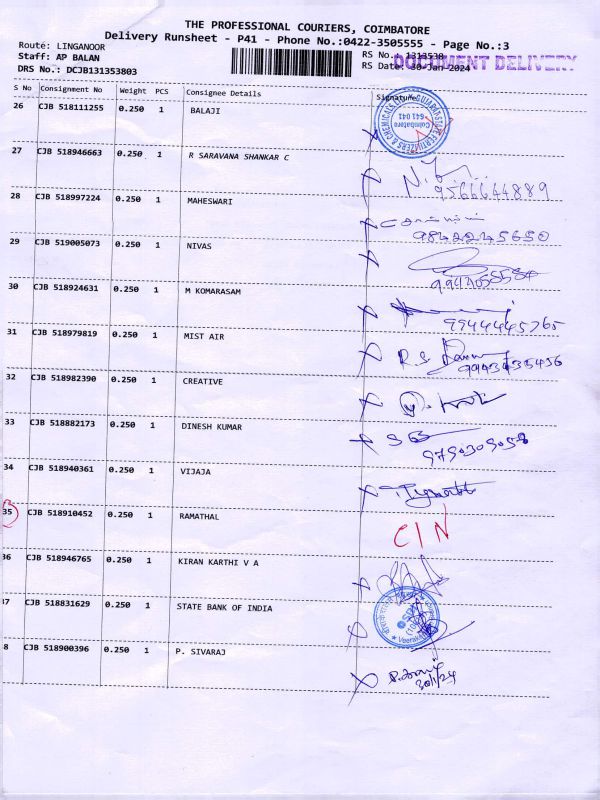 THE PROFESSIONAL COURIERS, COIMBATORE
Delivery Runsheet - P41 - Phone No.:0422-3505555 - Page No.:3
Route: LINGANOOR
RS No.: 1313538
Staff: AP BALAN
RS Date: 30-Jan-2024
DOCUMENT DELIVERY
DRS No.: DCJB131353803
S No Consignment No Weight PCS Consignee Details Signature
26 CJB 518111255 0.250 1 BALAJI
Coimbatore
641 041
27 CJB 518946663 0.250 1 R SARAVANA SHANKAR C
9566644889
28 CJB 518997224 0.250 1 MAHESWARI
9842245650
29 CJB 519005073 0.250 1 NIVAS
30 CJB 518924631 0.250 1 M KOMARASAM
9944445765
31 CJB 518979819 0.250 1 MIST AIR
32 CJB 518982390 0.250 1 CREATIVE
33 CJB 518882173 0.250 1 DINESH KUMAR
34 CJB 518940361 0.250 1 VIJAJA
35 CJB 518910452 0.250 1 RAMATHAL
CIN
36 CJB 518946765 0.250 1 KIRAN KARTHI V A
37 CJB 518831629 0.250 1 STATE BANK OF INDIA
8 CJB 518900396 0.250 1 P. SIVARAJ
30/1/24